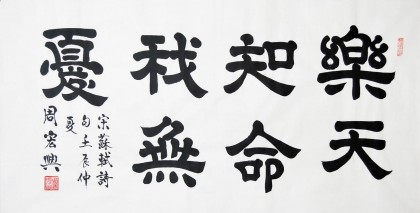 樂天
知命
我無
憂
宋蘇軾詩
句壬辰仲
夏
周宏興